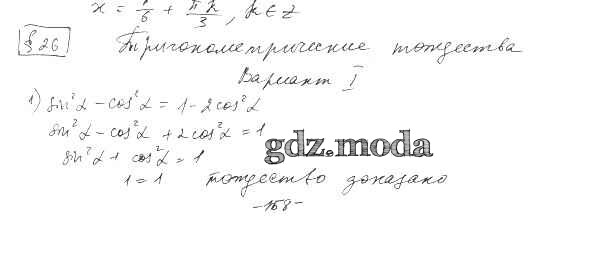 x = π/6 + πk/3, k ∈ Z
§ 26 Тригонометрические тождества
Вариант I
1) sin²α – cos²α = 1 – 2cos²α
sin²α – cos²α + 2cos²α = 1
sin²α + cos²α = 1
gdz.moda
1 = 1 тождество доказано
–158–